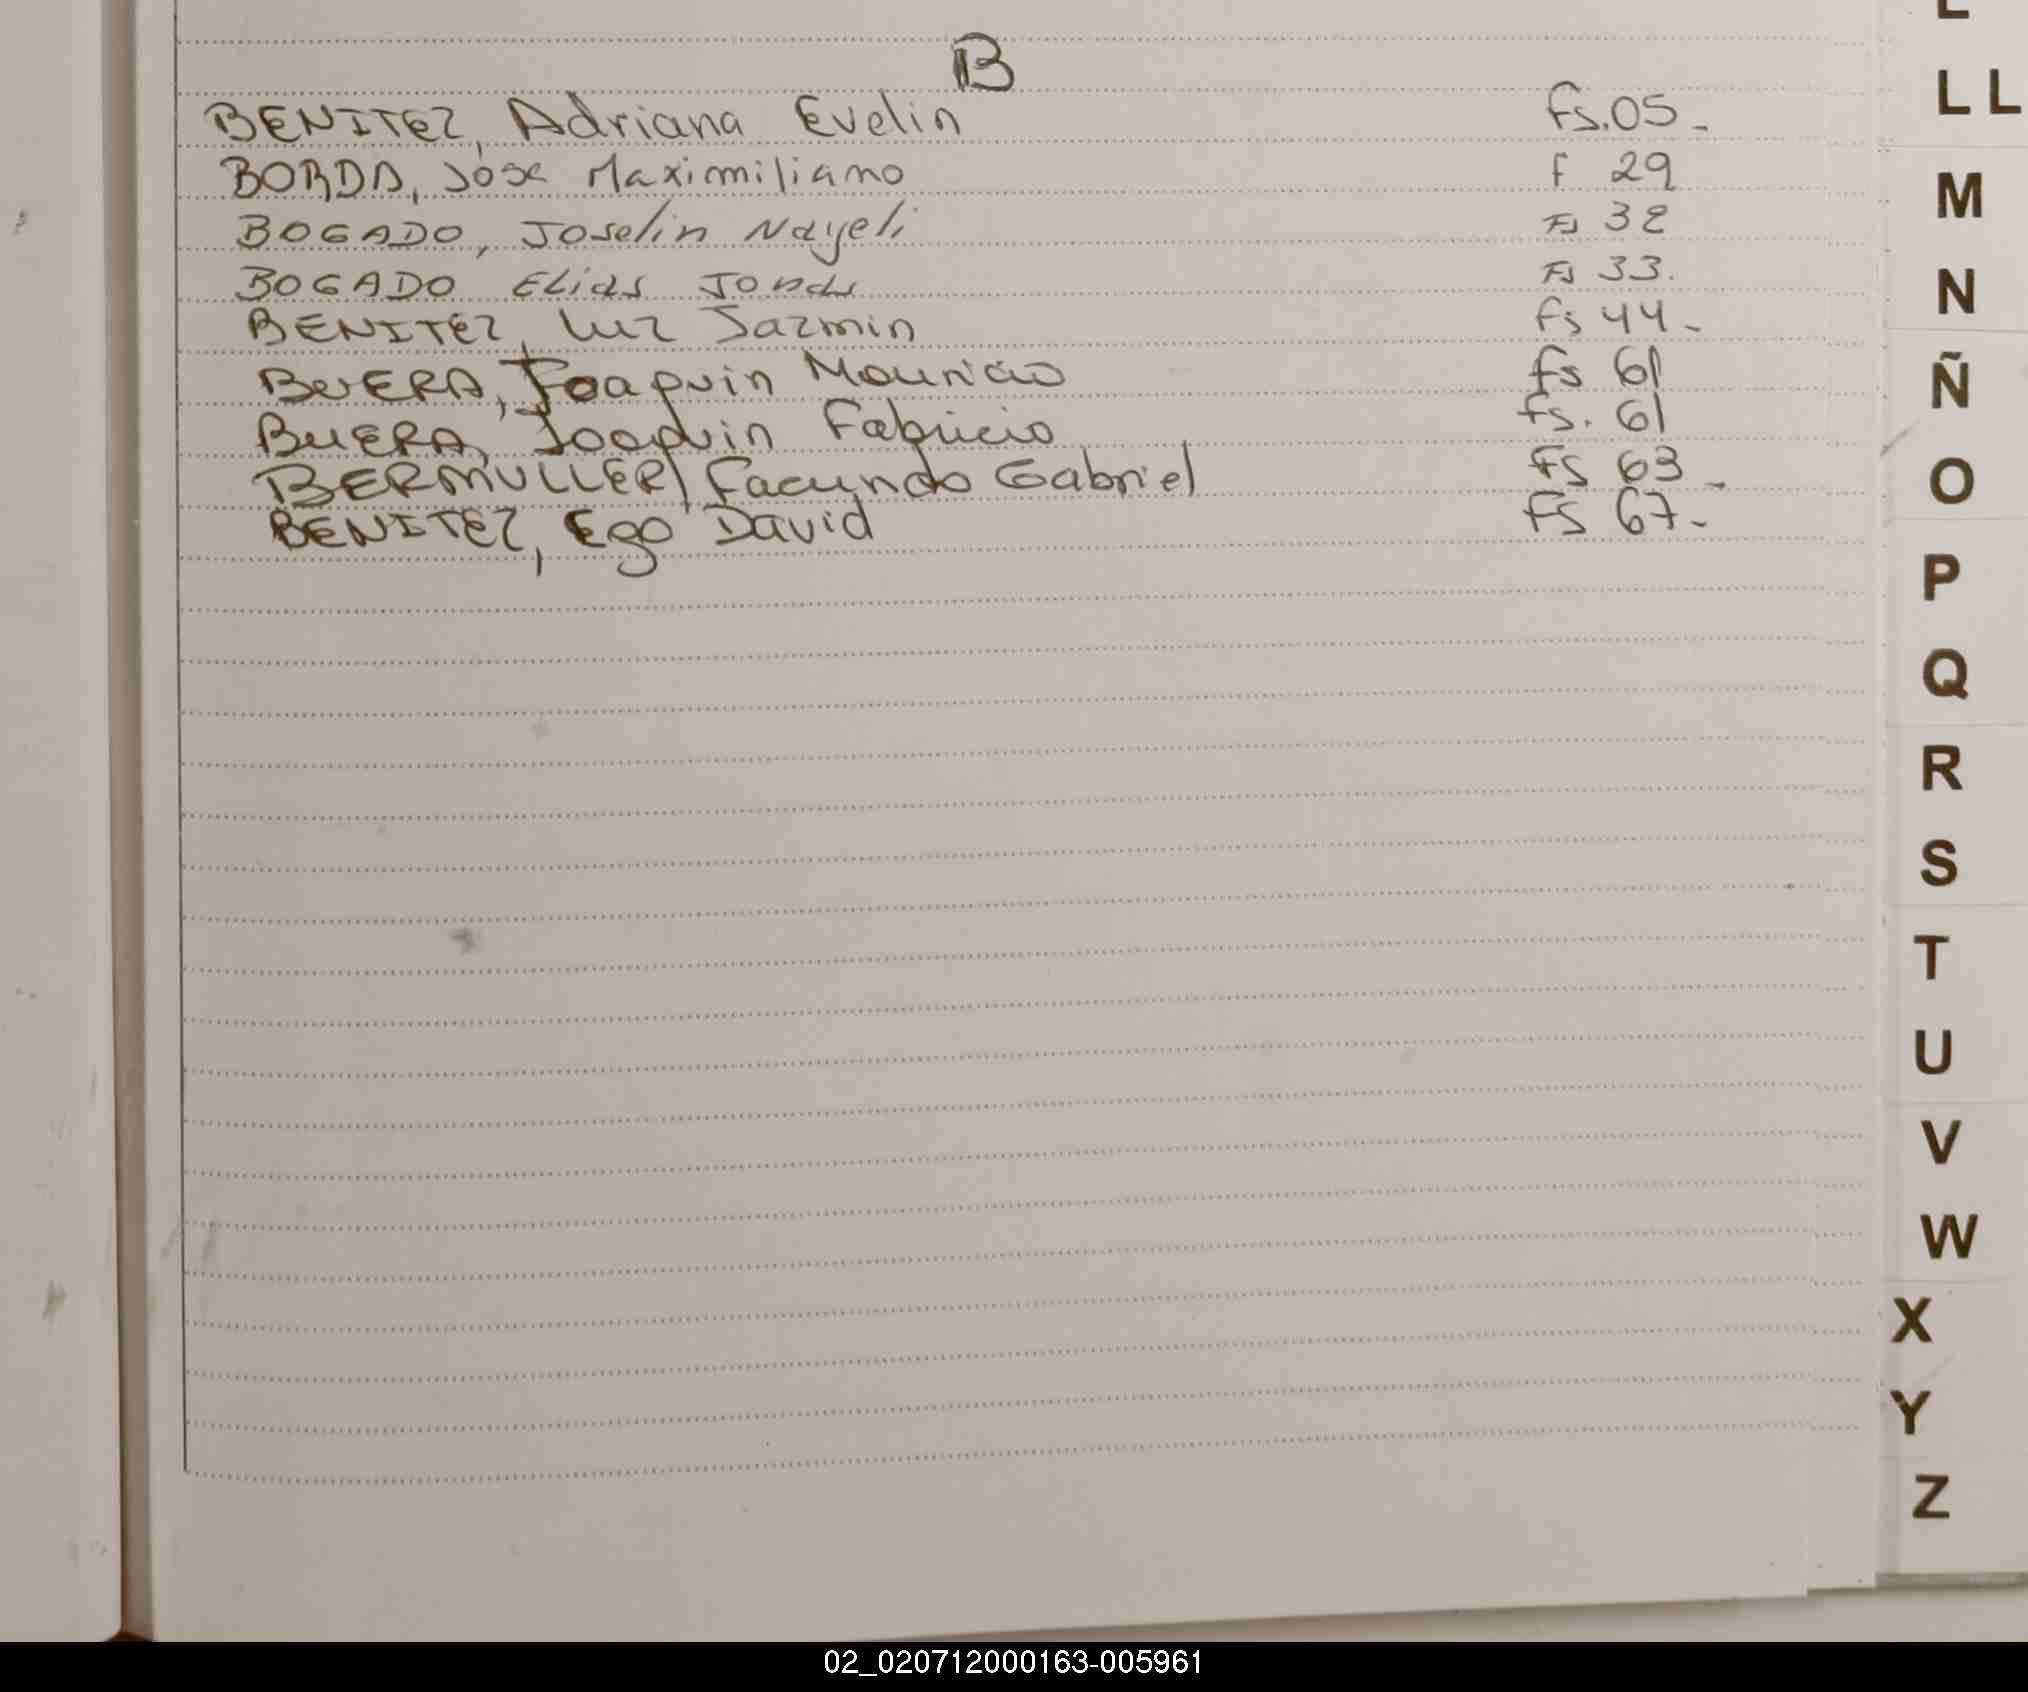 B
BENITEZ, Adriana Evelin fs.05-
BORDA, Jose Maximiliano f 29
BOGADO, Joselin Nayeli Fs 32
BOGADO Elias Jonas Fs 33.
BENITEZ, Luz Jazmin fs 44-
BUERA, Joaquin Mauricio fs 61
BUERA, Joaquin Fabricio fs. 61
BERMULLER, Facundo Gabriel fs 63-
BENITEZ, Ego David fs 67-
LL
M
N
Ñ
O
P
Q
R
S
T
U
V
W
X
Y
Z
02_020712000163-005961